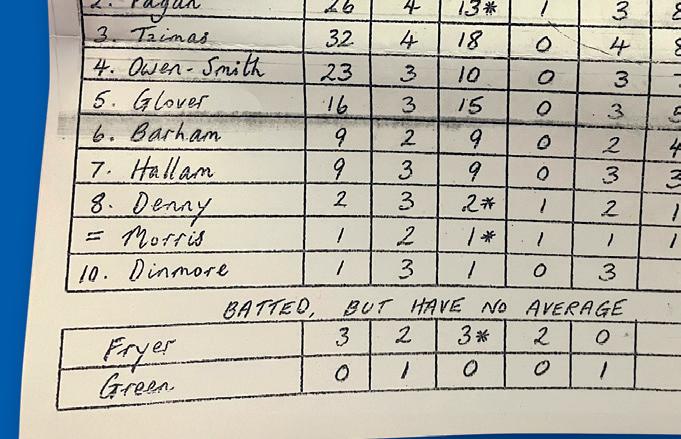 2. Pagan 26 4 13* 1 3 8
3. Tzimas 32 4 18 0 4 8
4. Owen-Smith 23 3 10 0 3
5. Glover 16 3 15 0 3 5
6. Barham 9 2 9 0 2 4
7. Hallam 9 3 9 0 3 3
8. Denny 2 3 2* 1 2 1
= Morris 1 2 1* 1 1 1
10. Dinmore 1 3 1 0 3
BATTED, BUT HAVE NO AVERAGE
Fryer 3 2 3* 2 0
Green 0 1 0 0 1